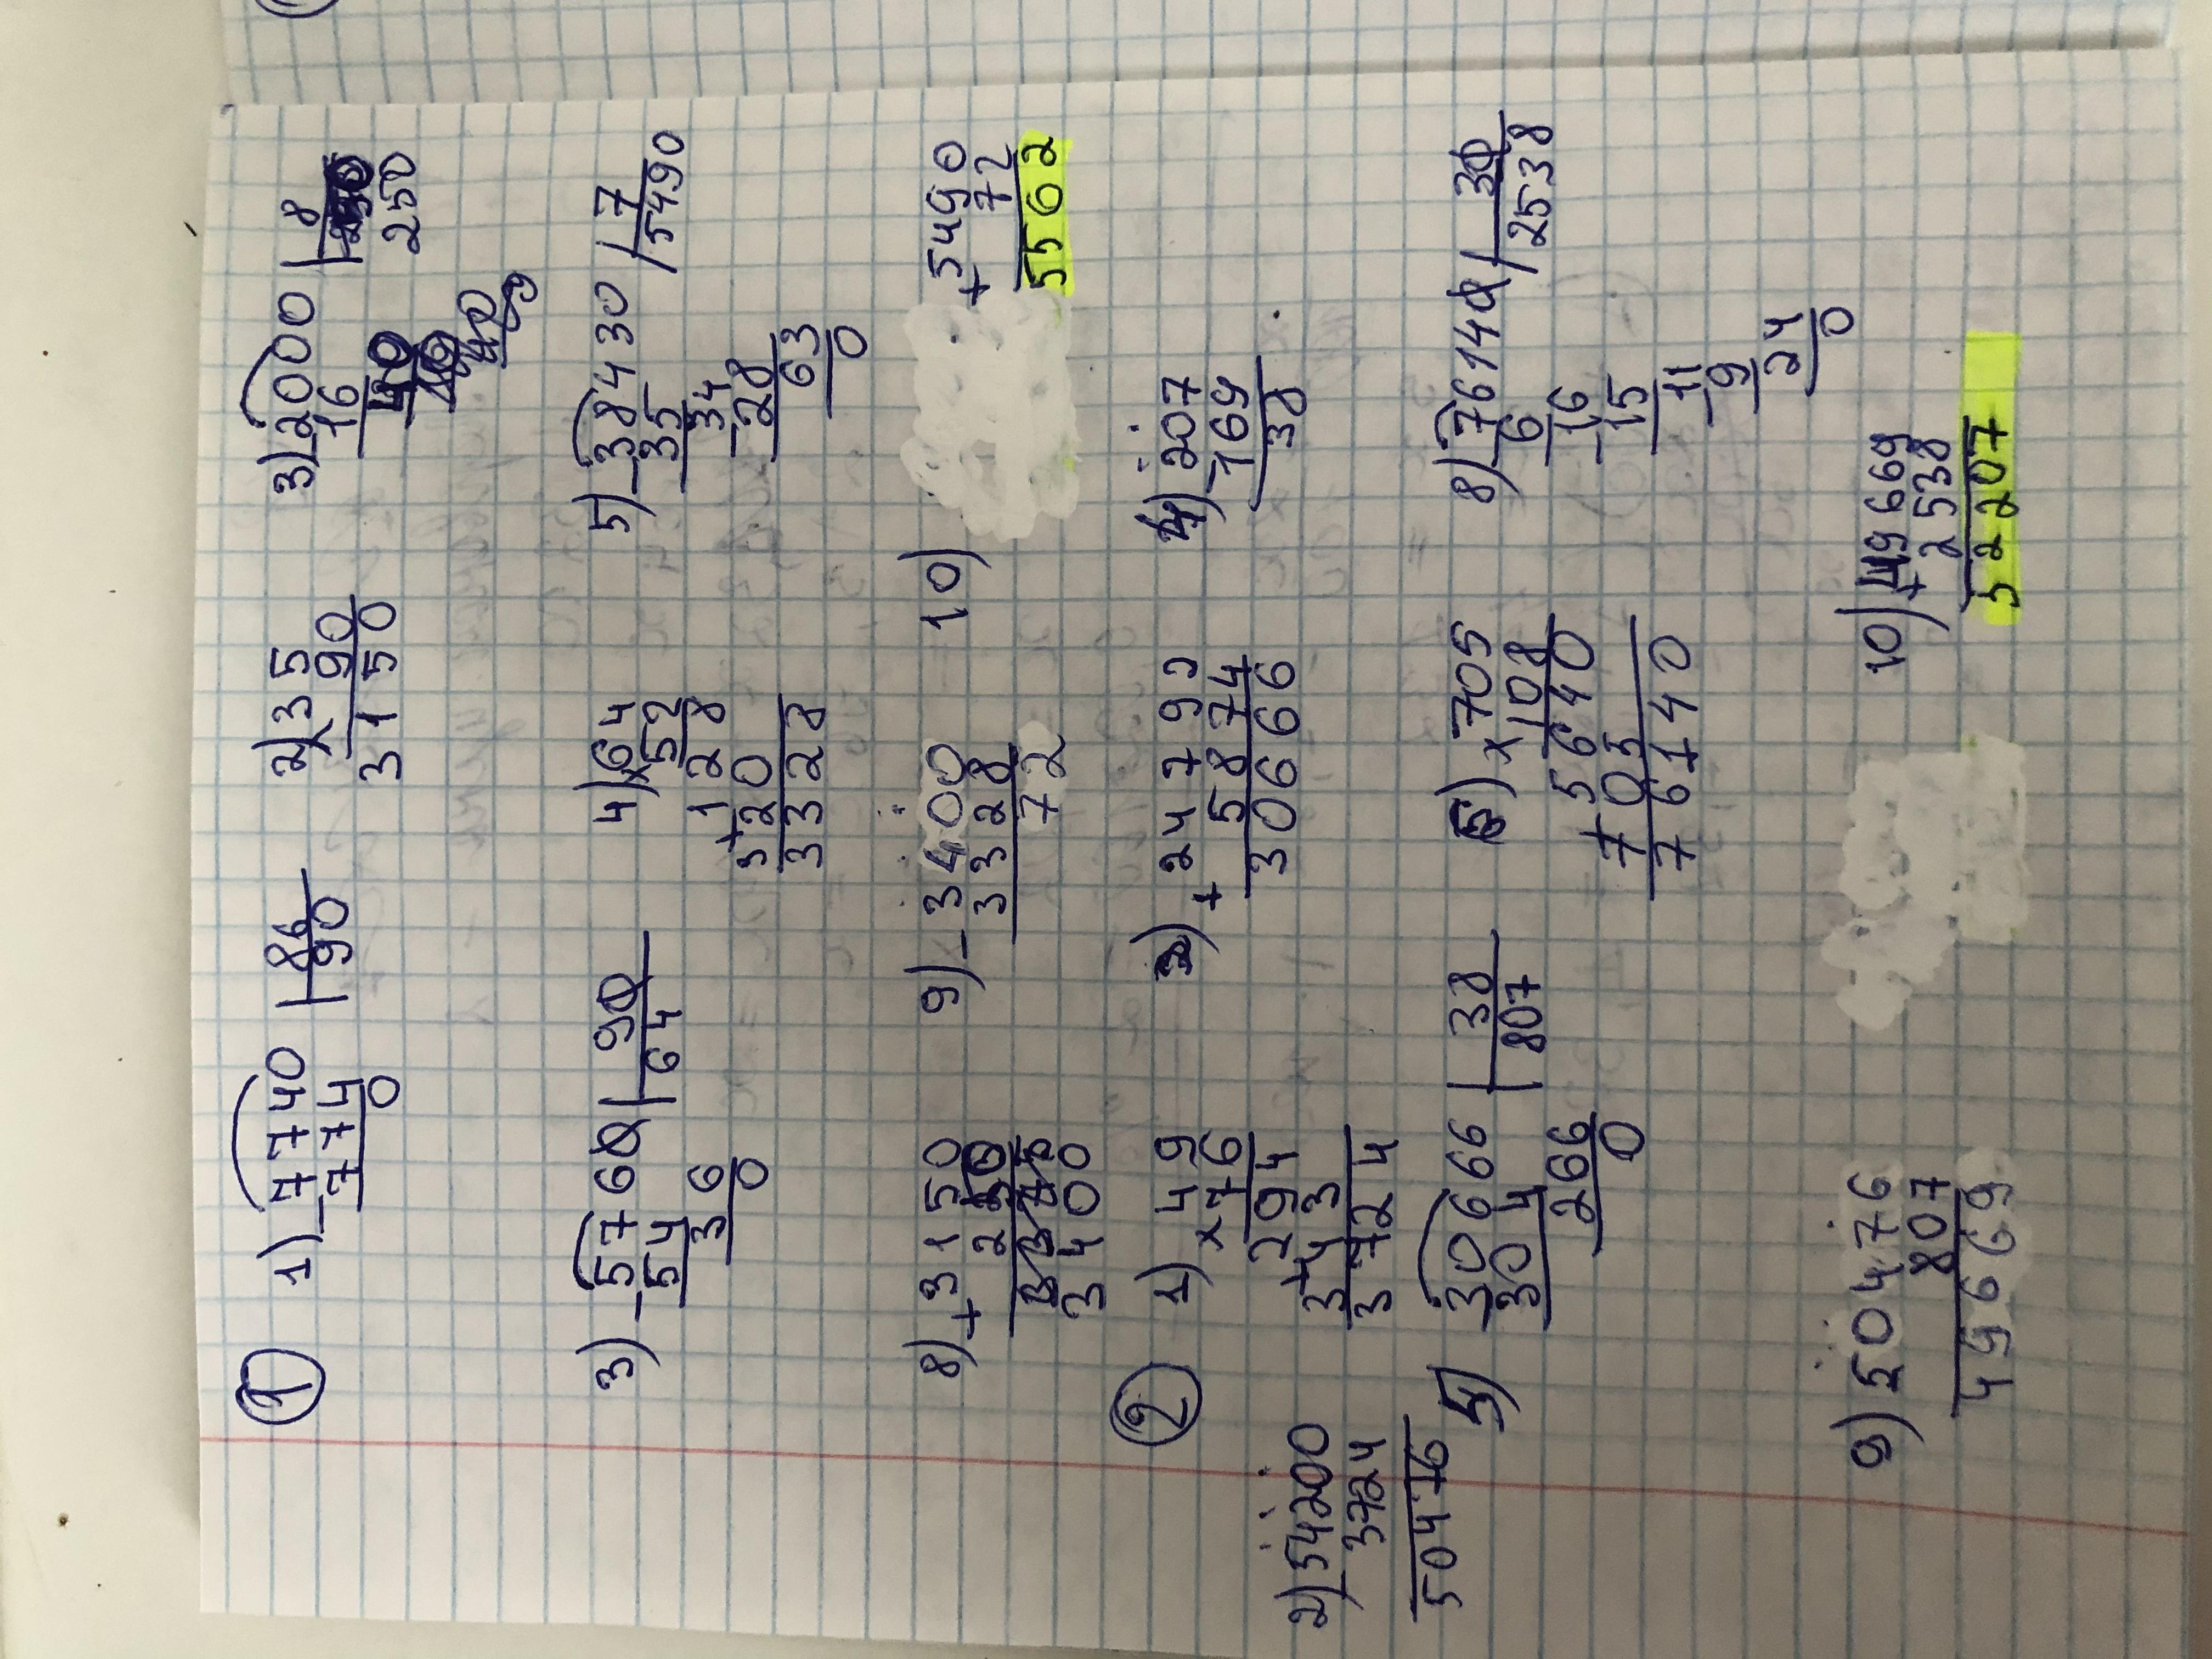 1
1) 7740 | 86
774 90
0
2) 35
× 90
3150
3) 2000 | 8
16 250
40
3) 5760 | 90
54 64
36
0
4) × 64
52
128
+ 320
3328
5) 38430 | 7
35 5490
34
- 28
63
0
8) + 3150
250
3400
9) - 3400
3328
72
10) + 5490
72
5562
2
1) 49
× 76
294
+ 343
3724
2) - 54200
3724
50476
3) + 247792
5874
306666
4) - 207
169
38
5) - 30666 | 38
304 807
266
0
6) × 705
108
5640
705
76140
8) - 76140 | 30
6 2538
- 16
15
- 11
9
24
0
9) 50476
807
49669
10) + 49669
2538
52207